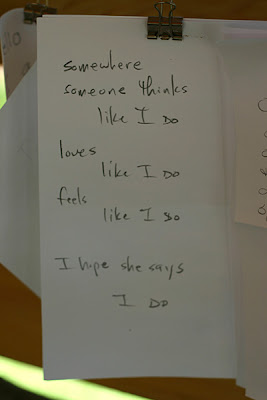 somewhere
someone thinks
like I Do
loves
like I Do
feels
like I Do
I hope she says
I Do